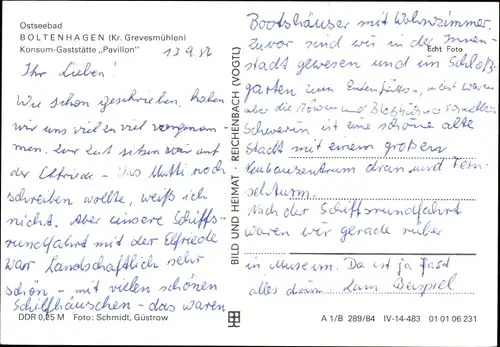 Ostseebad
BOLTENHAGEN (Kr. Grevesmühlen)
Konsum-Gaststätte „Pavillon"
13 9 86
Ihr Lieben!
Wie schon geschrieben, haben
wir uns viel zu viel vorgenom-
men. Zur Zeit sitzen wir auf
der Elfriede - Was Mutti noch
schreiben wollte, weiß ich
nicht. Aber unsere Schiffs-
rundfahrt mit der Elfriede
war Landschaftlich sehr
schön - mit vielen schönen
Schilfhäuschen - das waren
DDR 0,25 M Foto: Schmidt, Güstrow
BILD UND HEIMAT · REICHENBACH (VOGTL)
Echt Foto
Bootshäuser mit Wohnzimmer
Zuvor sind wir in der Innen-
stadt gewesen und im Schloß-
garten zum Entenfüttern,
aber die Möwen und Bleßhühner schneller.
Schwerin ist eine schöne alte
Stadt mit einem großen
Neubauzentrum dran und Fern-
sehturm.
Nach der Schiffsrundfahrt
waren wir gerade rüber
in Museum. Da ist ja fast
alles drin. Zum Beispiel
A 1/B 289/84 IV-14-483 01 01 06 231